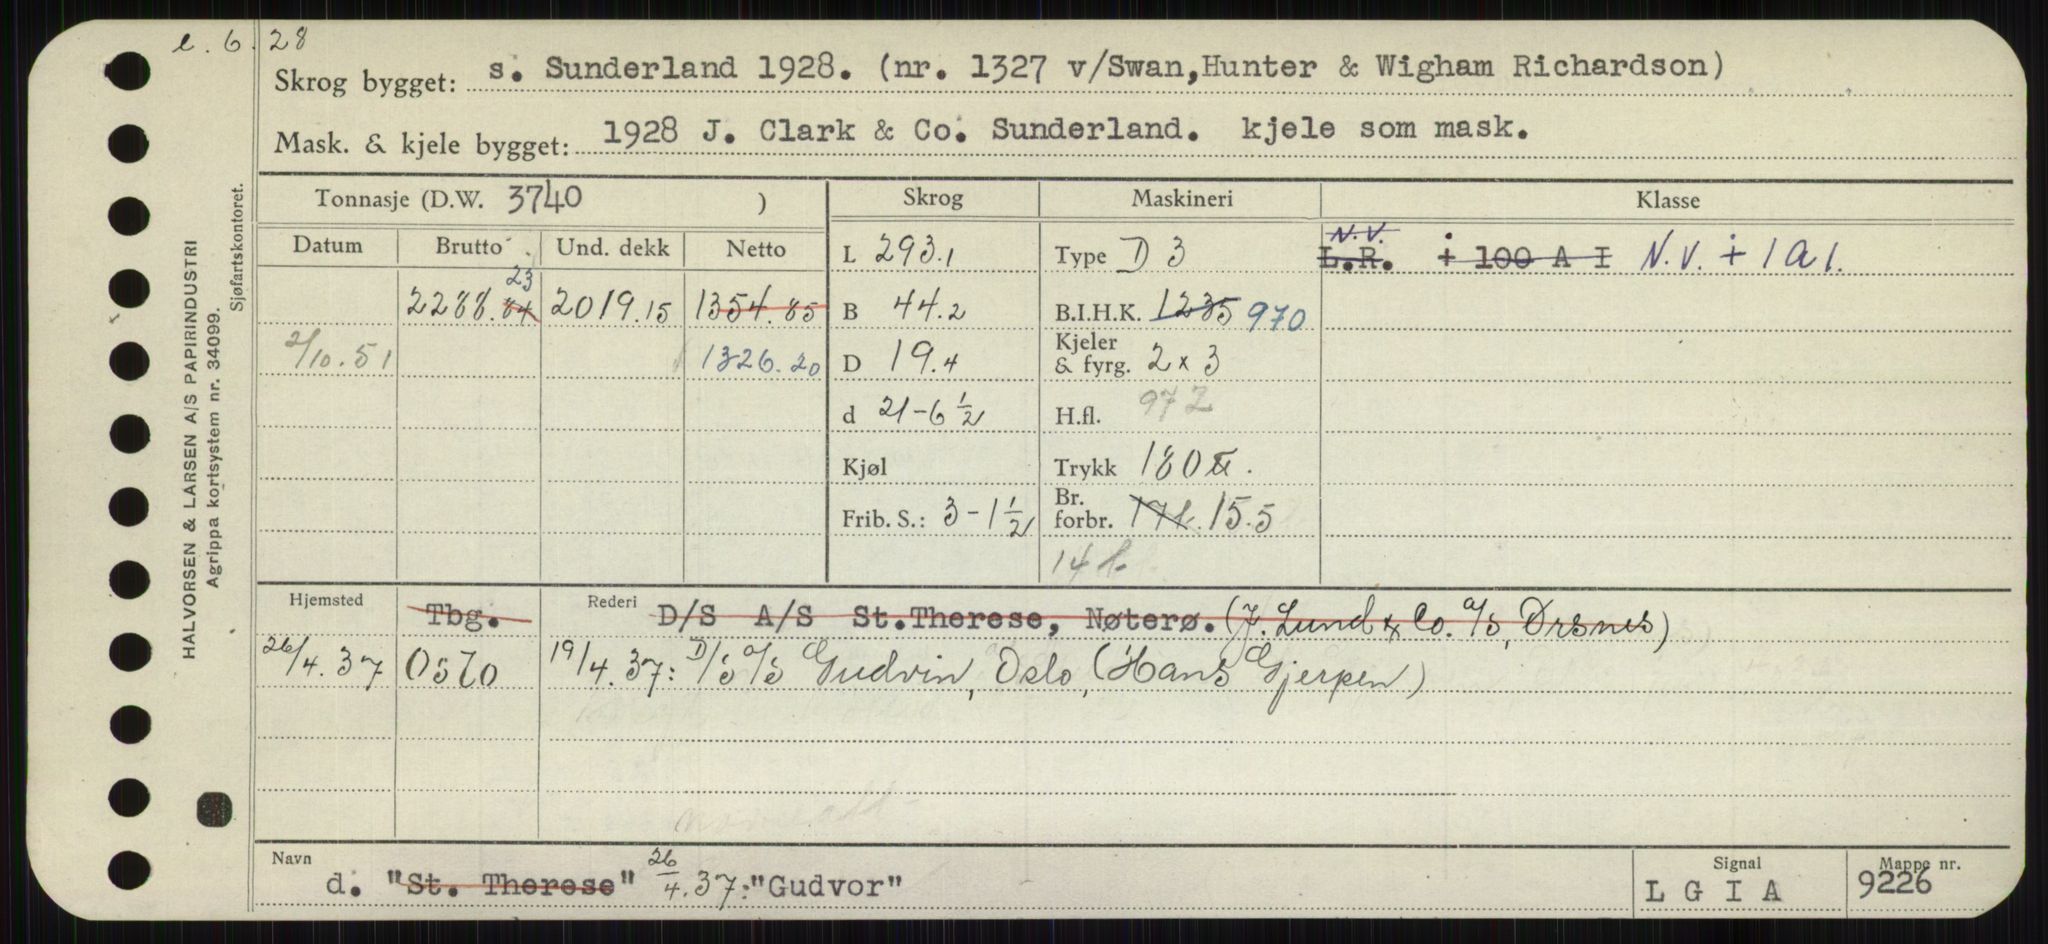 l. 6. 28
Skrog bygget: s. Sunderland 1928. (nr. 1327 v/Swan,Hunter & Wigham Richardson)
Mask. & kjele bygget: 1928 J. Clark & Co. Sunderland. kjele som mask.
Tonnasje (D.W. 3740 ) Skrog Maskineri Klasse
Datum Brutto Und. dekk Netto L 293.1 Type D 3 N.V. L.R. + 100 A I N.V. + 1 A 1.
23
2288.84 2019.15 1354.85 B 44.2 B.I.H.K. 1235 970
2/10.51 1326.20 D 19.4 Kjeler & fyrg. 2 x 3
d 21-6 1/2 H.fl. 972
Kjøl Trykk 180 .
Frib. S.: 3-1 1/2 Br. forbr. 17 t. 15.5
14 t.
Hjemsted Tbg. Rederi D/S A/S St.Therese, Nøterø. (J. Lund & Co. A/S, Ørsnes)
26/4.37 Oslo 19/4.37: D/S A/S Gudvin, Oslo, (Hans Gjerpen)
Navn d. "St. Therese" 26/4.37: "Gudvor" Signal L G I A Mappe nr. 9226
HALVORSEN & LARSEN A/S PAPIRINDUSTRI
Agrippa kortsystem nr. 34099.
Sjøfartskontoret.